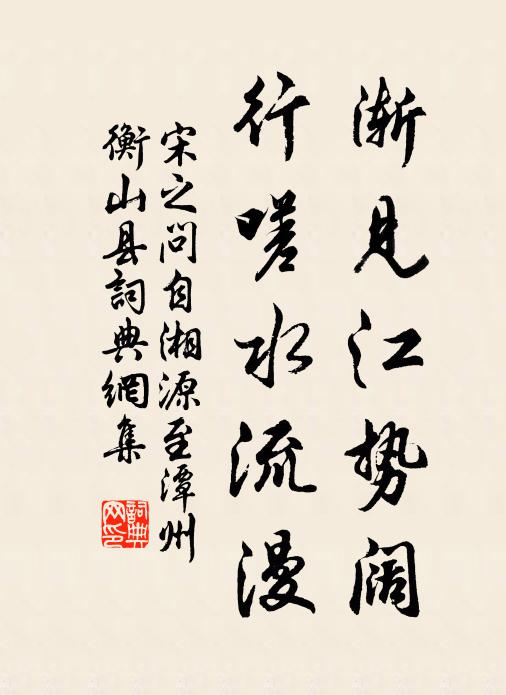 渐见江势阔
行嗟水流漫
宋之问自湘源至潭州
衡山县詞典網集
詞典
网印